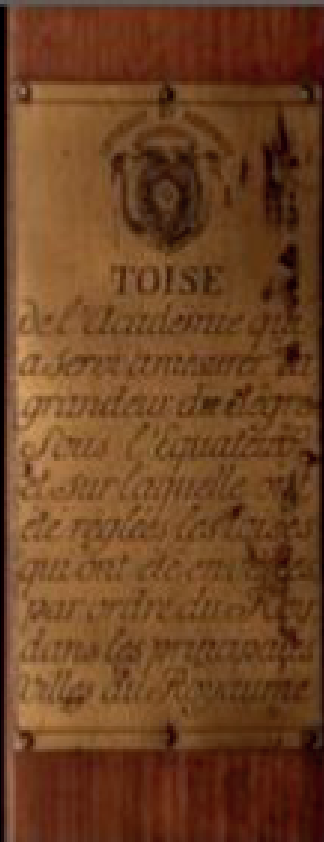 TOISE
de l'Académie qui
a servi a mesurer la
grandeur du degré
Sous l'Equateur,
et sur laquelle ont
été réglées les toises
qui ont été envoyées
par ordre du Roy
dans les principales
Villes du Royaume